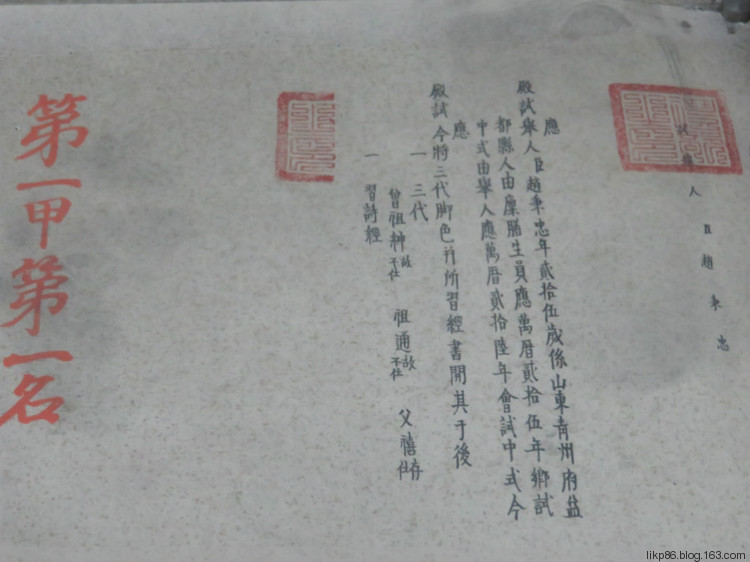 人臣趙秉忠
應
殿試舉人臣趙秉忠年貳拾伍歲係山東青州府益
都縣人由廩膳生員應萬曆貳拾伍年鄉試
中式由舉人應萬曆貳拾陸年會試中式今
應
殿試今將三代脚色并所習經書開具于後
一三代
曾祖紳故不仕 祖通故不仕 父禧存仕
一習詩經
第一甲第一名
likp86.blog.163.com